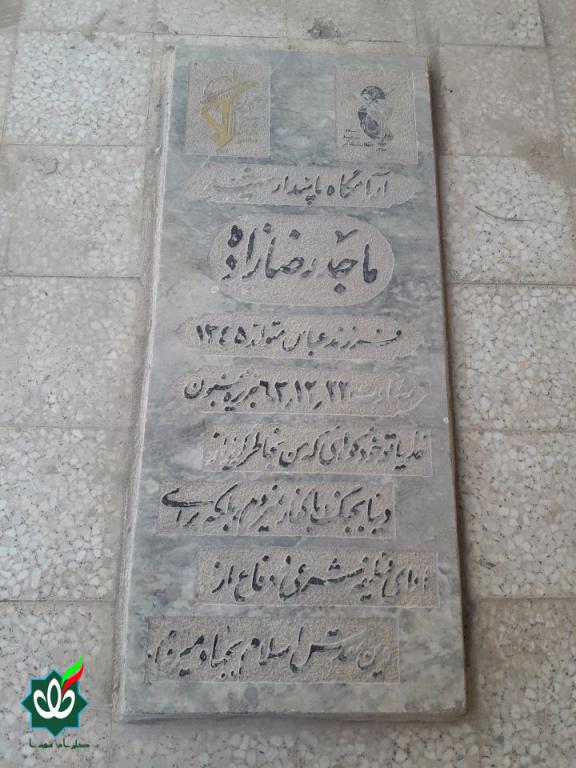 آرامگاه پاسدار شهید
ماجد رضازاده
فرزند عباس متولد ۱۳۴۵
شهادت ۶۲٫۱۲٫۲۲ جزیره مجنون
خدایا تو خود گواهی که من بخاطر گریز از
دنیا بجنگ با کفار نیامدم بلکه برای
ادای وظیفه شرعی و دفاع از
دین مقدس اسلام بجهاد میروم.